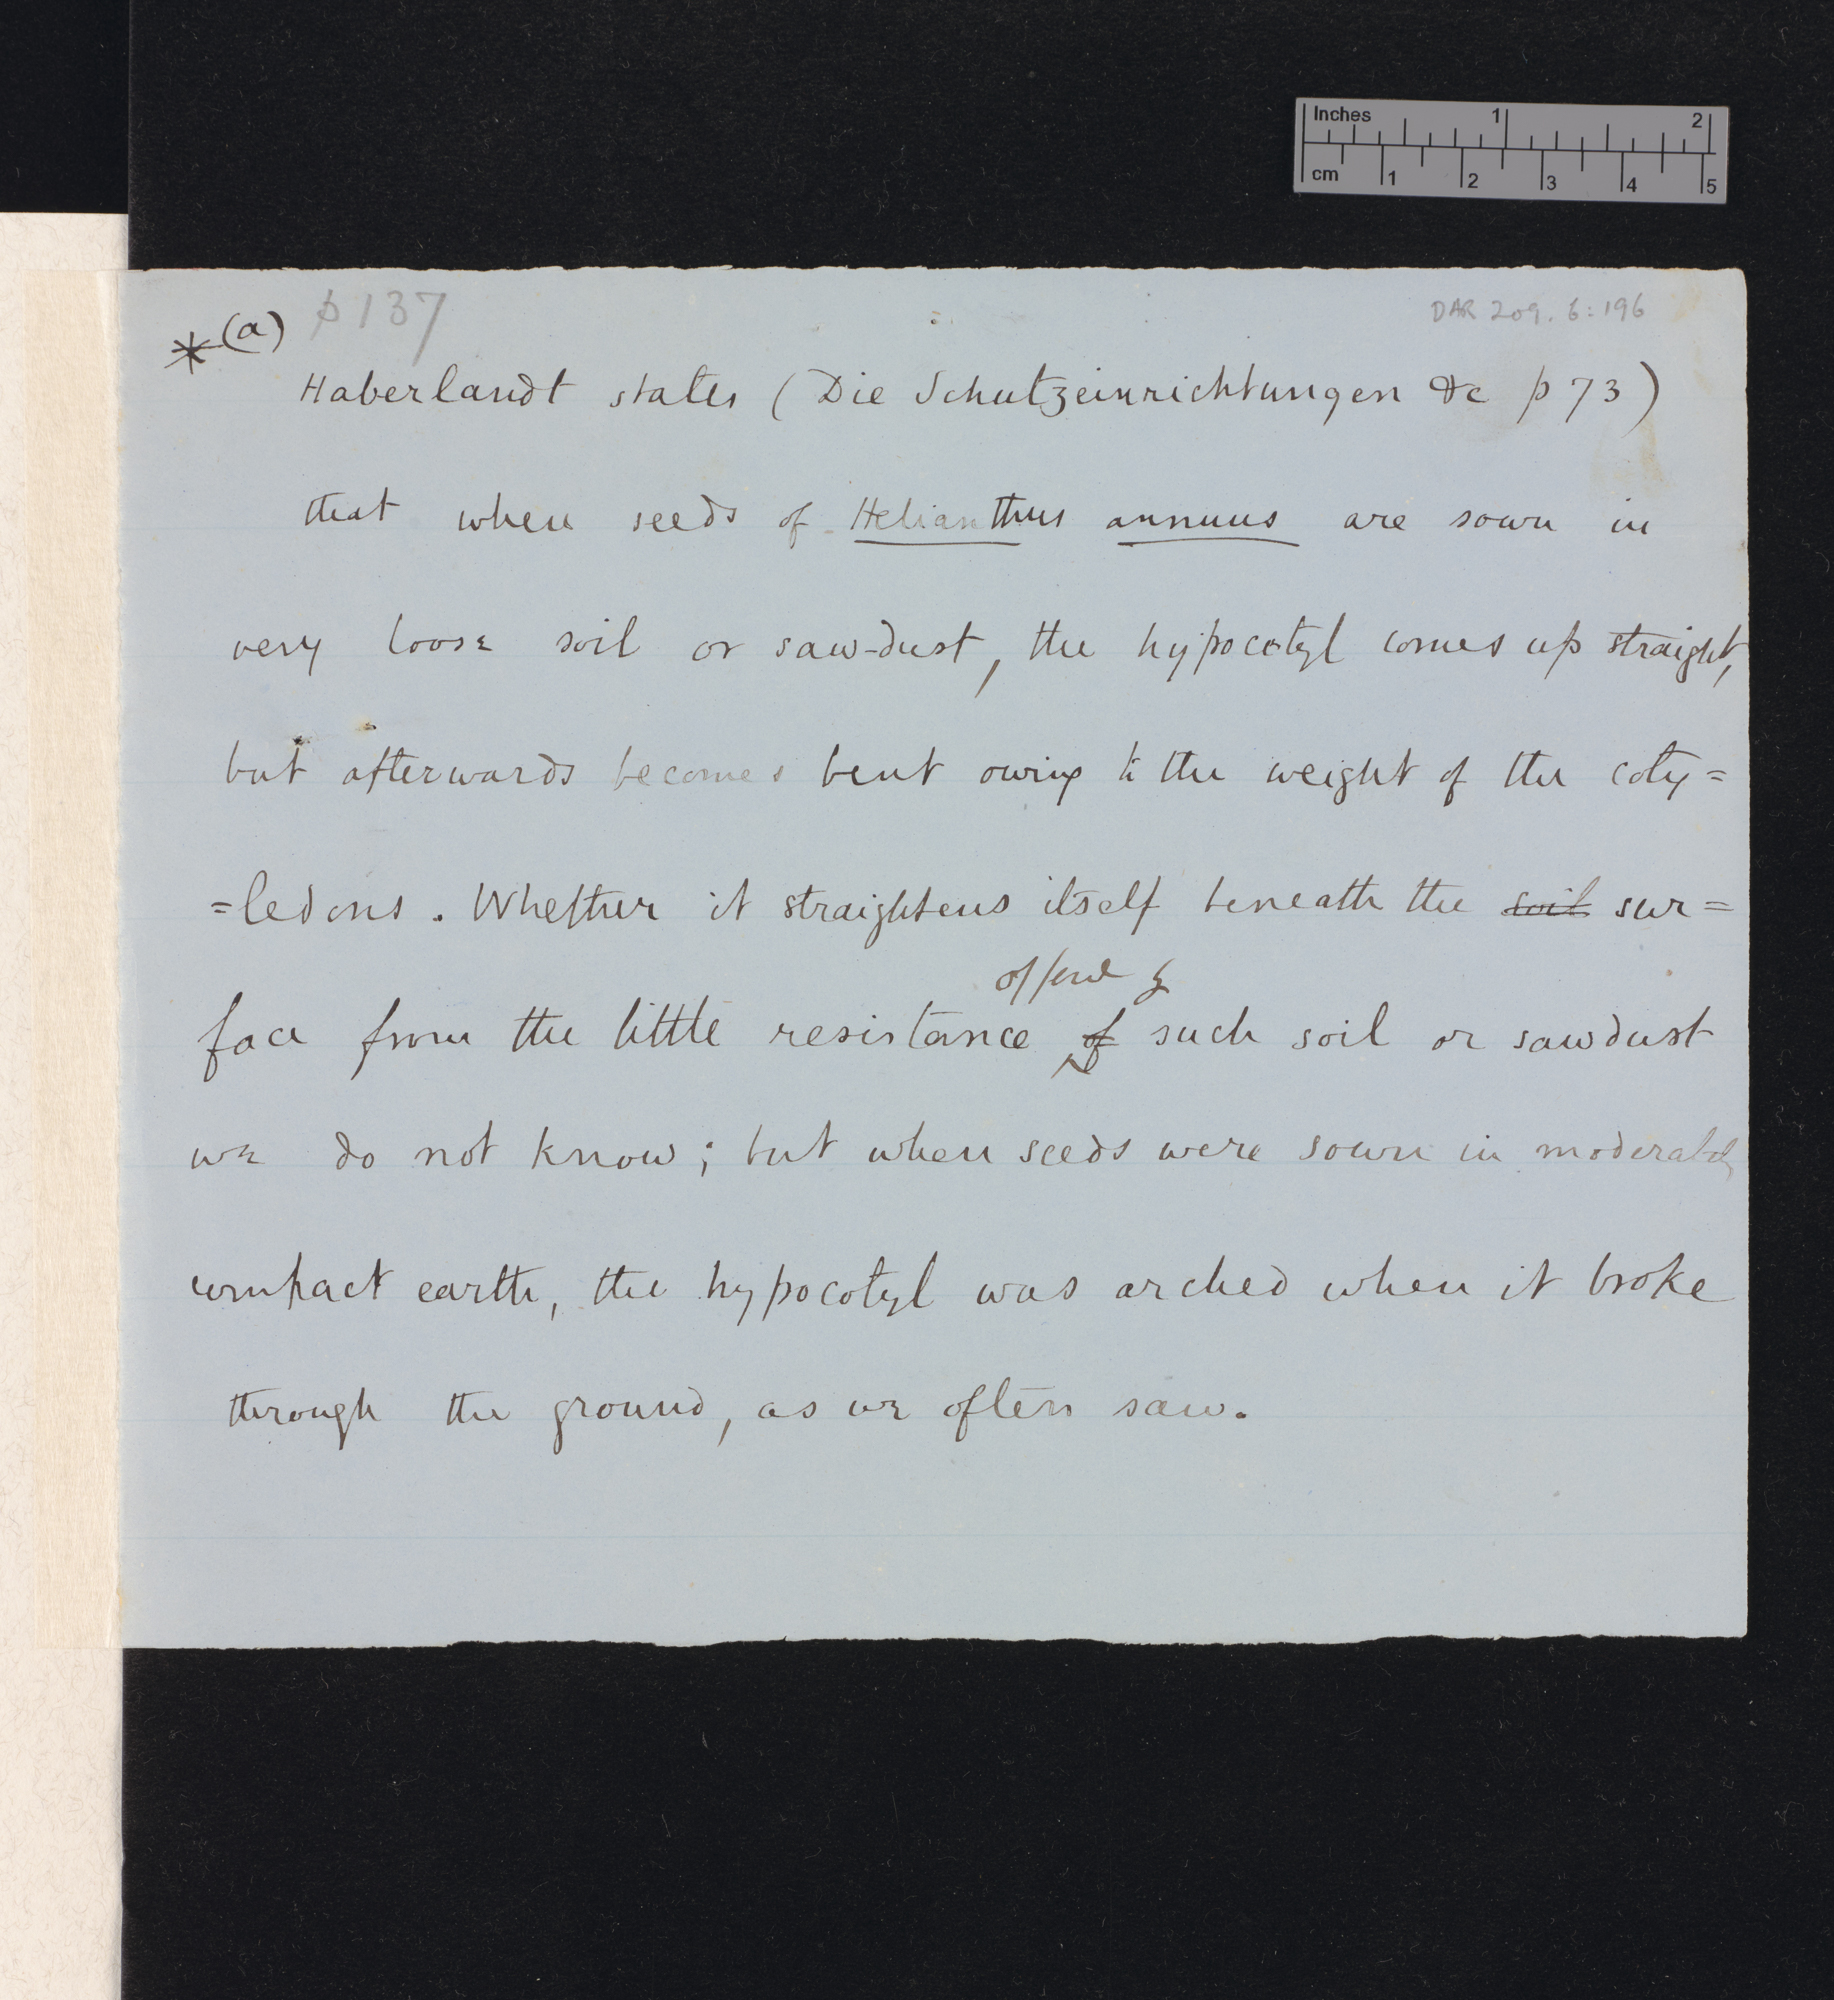 Inches 1 2
cm 1 2 3 4 5
DAR 209.6:196
*(a) p 137
Haberlandt states (Die Schutzeinrichtungen &c p 73)
that when seeds of Helianthus annuus are sown in
very loose soil or saw-dust, the hypocotyl comes up straight,
but afterwards becomes bent owing to the weight of the coty=
=ledons. Whether it straightens itself beneath the soil sur=
offered by
face from the little resistance of such soil or sawdust
we do not know; but when seeds were sown in moderately
compact earth, the hypocotyl was arched when it broke
through the ground, as we often saw.